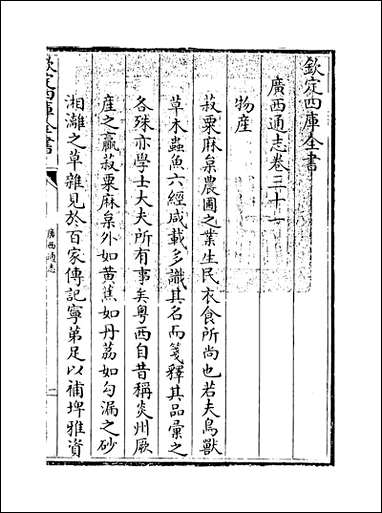 欽定四庫全書
廣西通志卷三十一
物産
菽粟麻枲農圃之業生民衣食所尚也若夫鳥獸
草木蟲魚六經咸載多識其名而箋釋其品彙之
各殊亦學士大夫所有事矣粤西自昔稱炎州厥
產之蠃菽粟麻枲外如黄蕉如丹荔如勾漏之砂
湘灕之草雜見於百家傳記寧第足以補埤雅資
欽定四庫全書
廣西通志
一